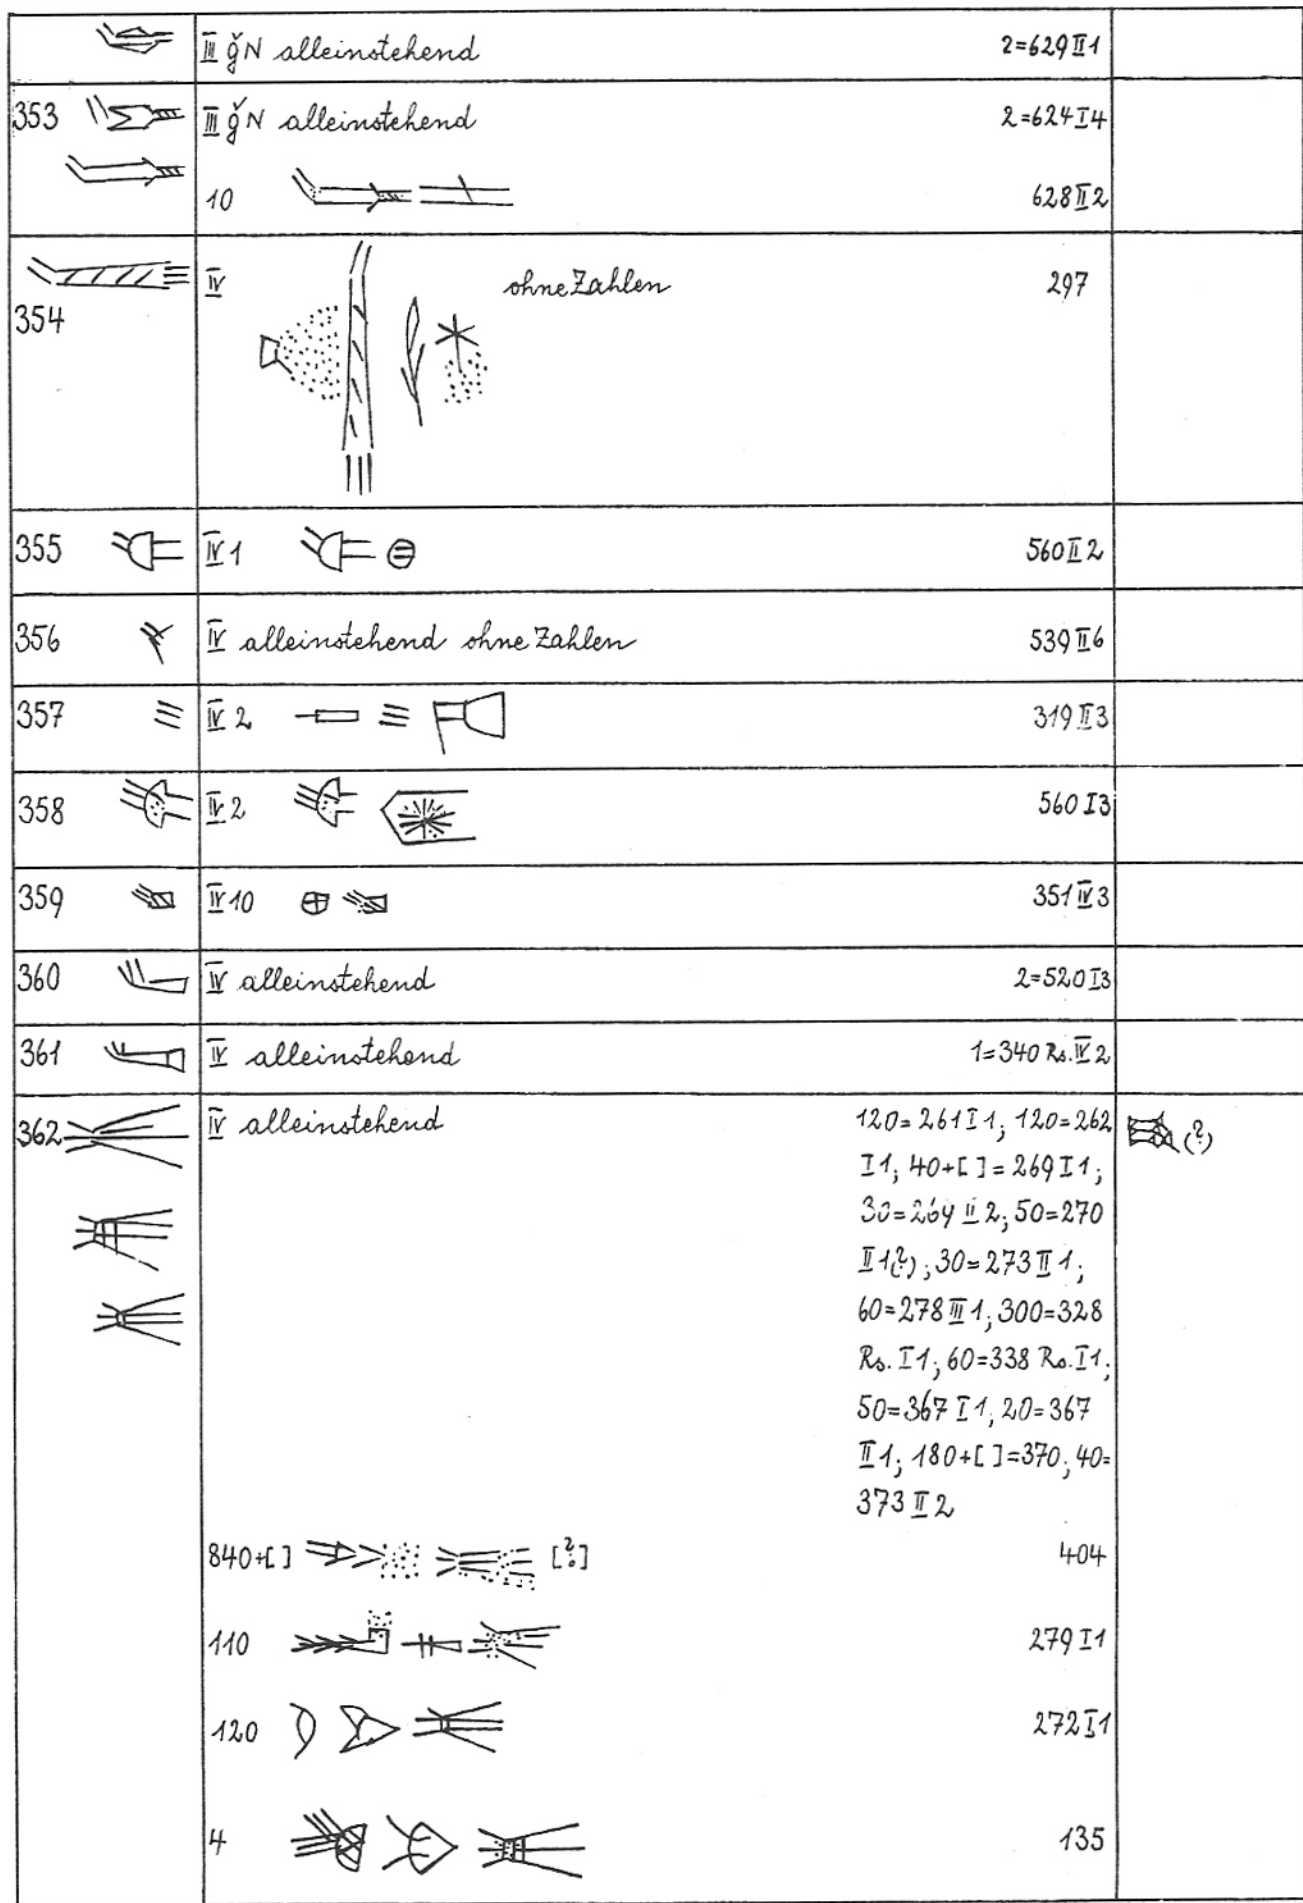 III ǧN alleinstehend 2=629 II 1
353 III ǧN alleinstehend 2=624 I 4
10 628 II 2
354 IV ohne Zahlen 297
355 IV 1 560 II 2
356 IV alleinstehend ohne Zahlen 539 II 6
357 IV 2 319 II 3
358 IV 2 560 I 3
359 IV 10 351 IV 3
360 IV alleinstehend 2=520 I 3
361 IV alleinstehend 1=340 Rs. IV 2
362 IV alleinstehend 120=261 I 1; 120=262 (?)
I 1; 40+[ ]=269 I 1;
30=264 II 2; 50=270
II 1(?); 30=273 II 1;
60=278 III 1; 300=328
Rs. I 1; 60=338 Rs. I 1;
50=367 I 1; 20=367
II 1; 180+[ ]=370; 40=
373 II 2
840+[ ] [?] 404
110 279 I 1
120 272 I 1
4 135